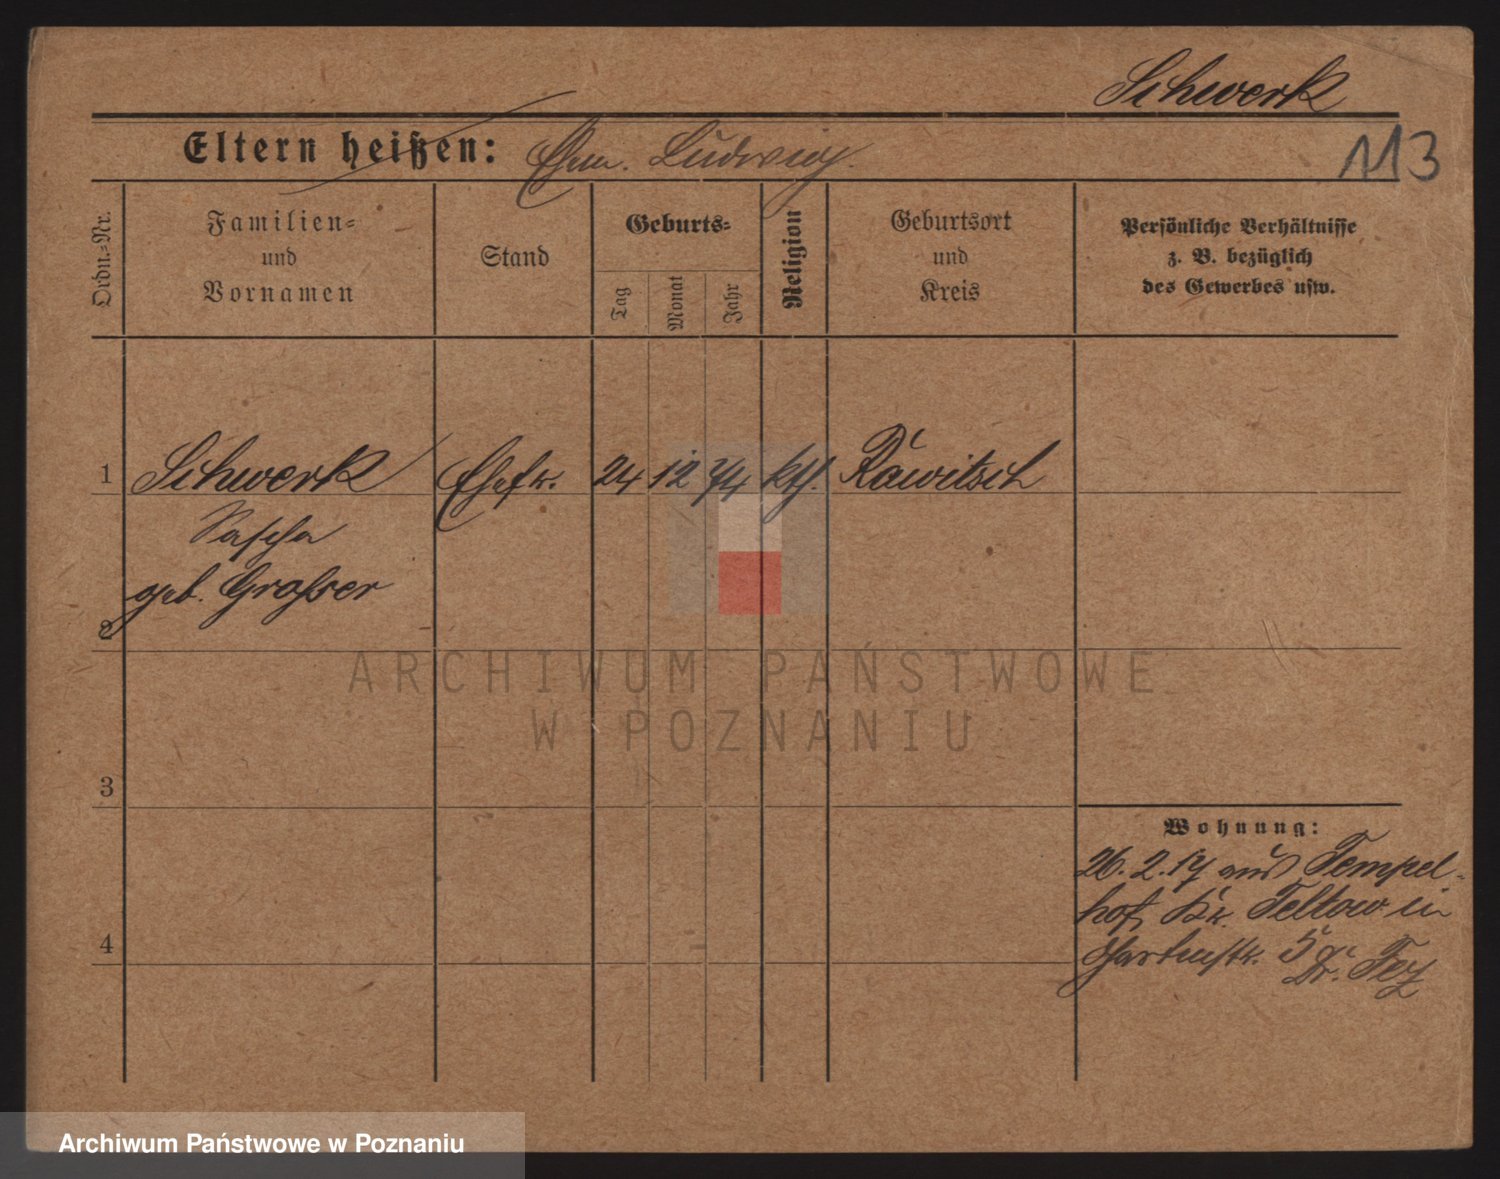 Schwerk
Eltern heißen: Ehem. Ludwig.
113
Ordn.-Nr.
Familien-
und
Vornamen
Stand
Geburts-
Tag
Monat
Jahr
Religion
Geburtsort
und
Kreis
Persönliche Verhältnisse
z. B. bezüglich
des Gewerbes usw.
1 Schwerk Ehefr. 24 12 74 kth. Rawitsch
geb. Grosser
2
3
4
Wohnung:
26.2.17 aus Tempel-
hof, Kr. Teltow in
Gartenstr. 5
ARCHIWUM PAŃSTWOWE
W POZNANIU
Archiwum Państwowe w Poznaniu